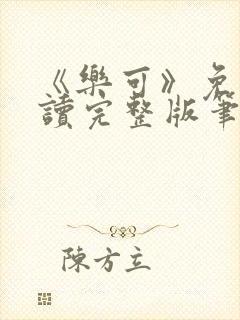 《樂可》免
讀完整版筆
陳方立